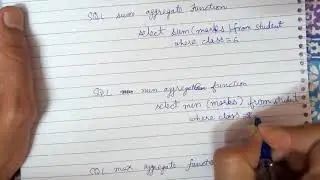 SQL sum aggregate function
select sum(marks) from student
where class=6
SQL min aggregate function
select min (marks) from student
where class =
SQL max aggregate function